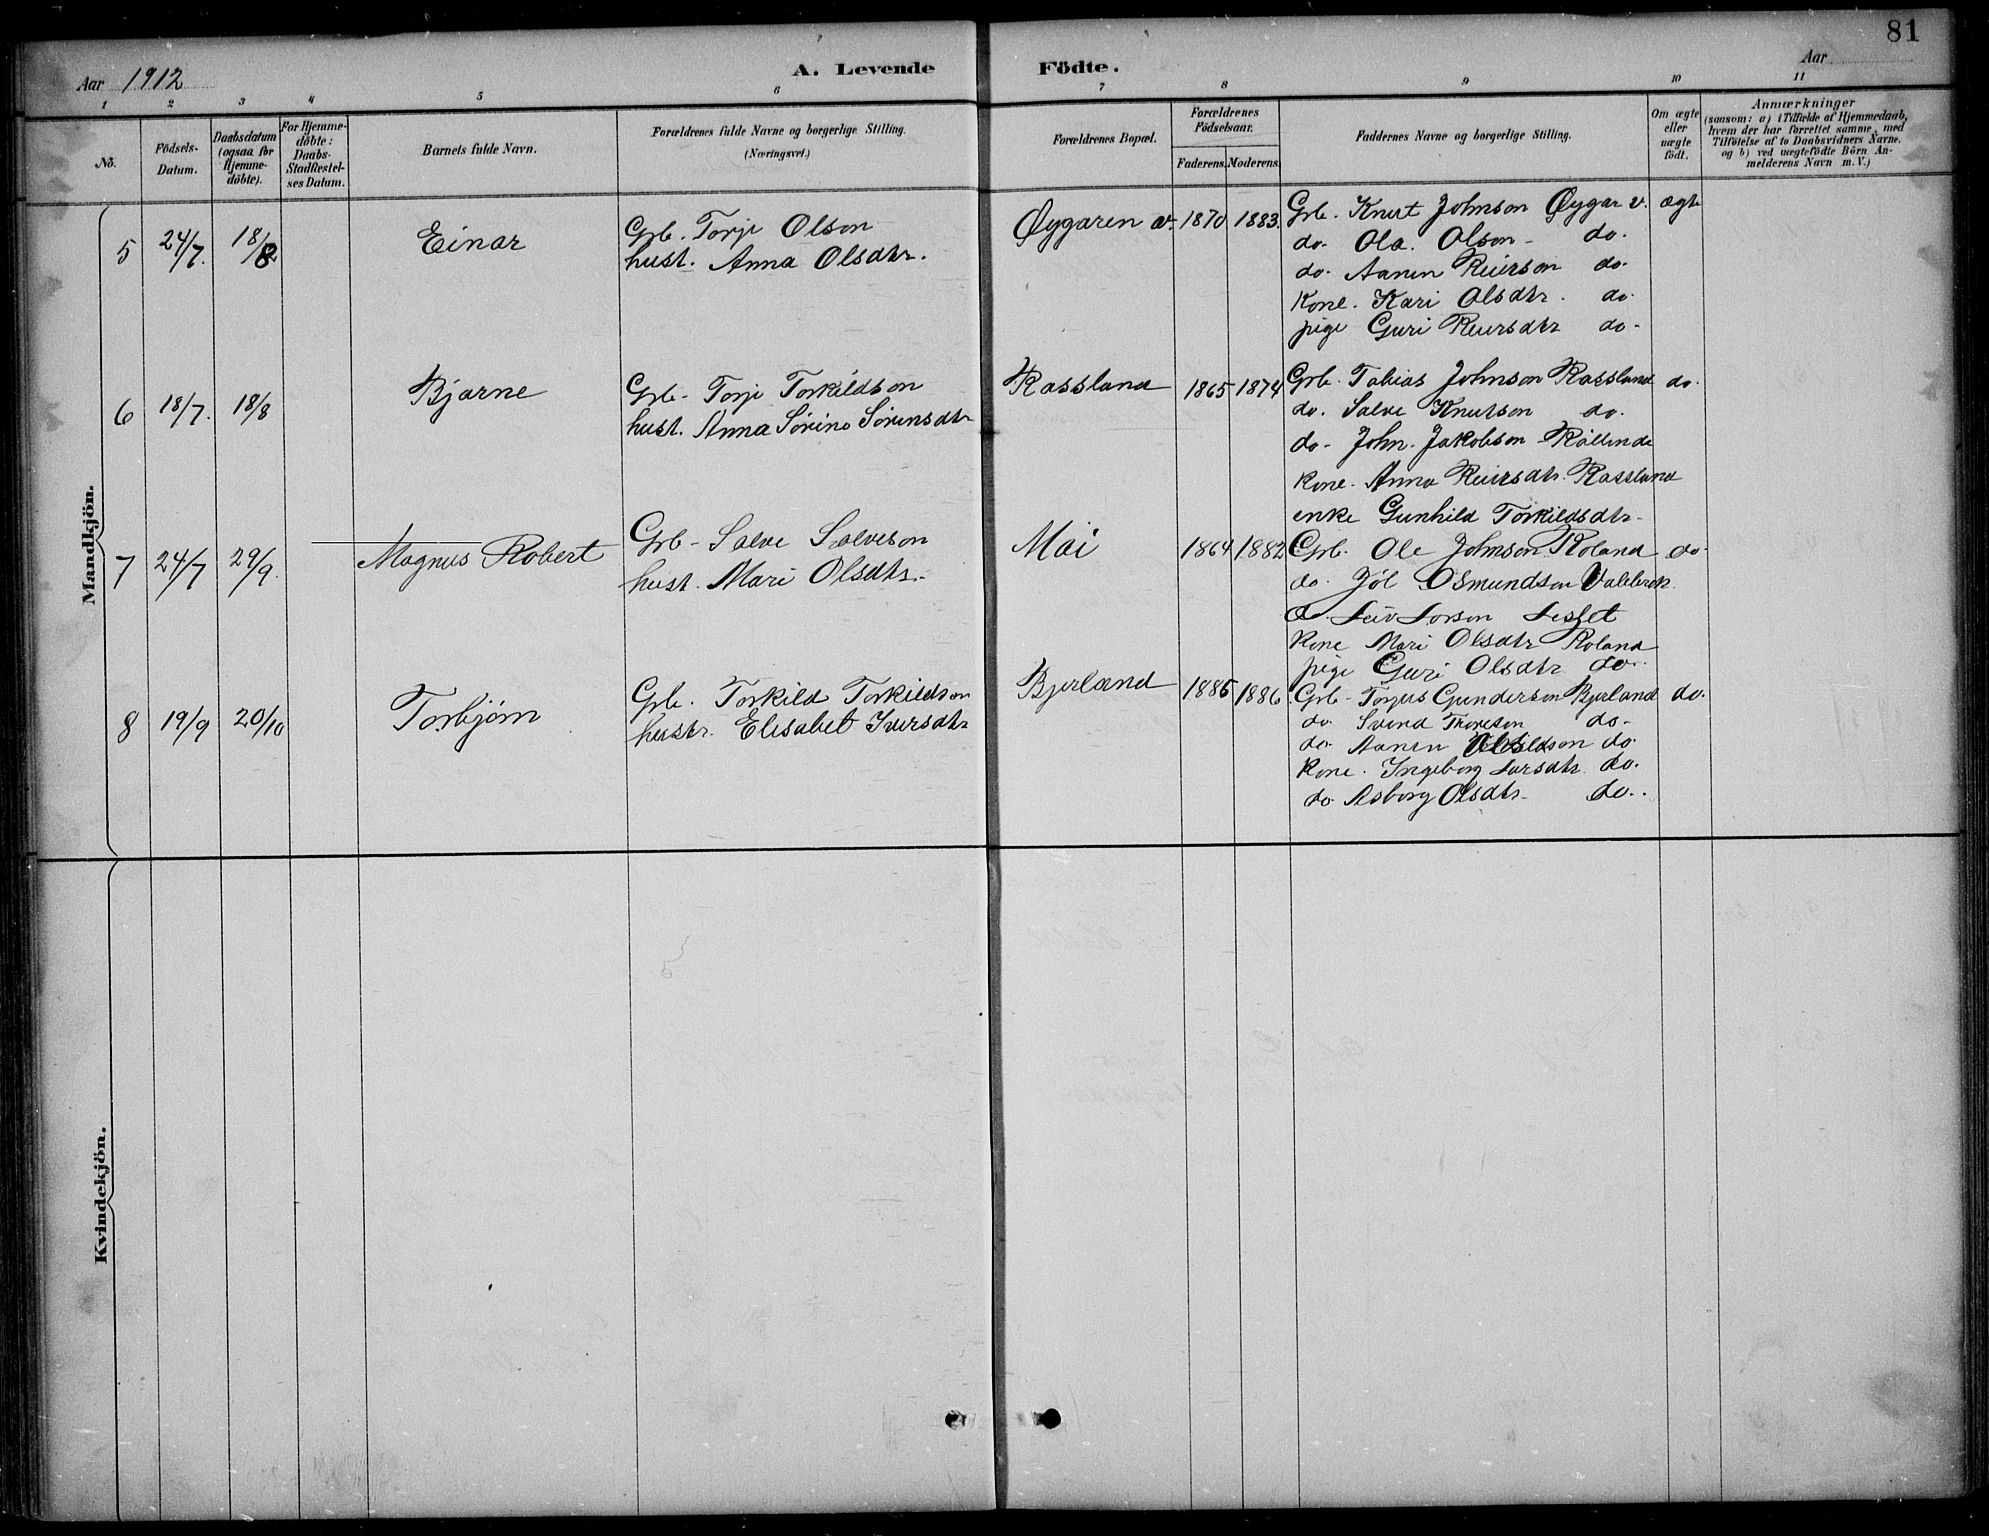 81
Aar 1912
A. Levende Födte.
Aar
1 2 3 4 5 6 7 8 9 10 11
No.
Födsels-Datum.
Daabsdatum (ogsaa for Hjemme-döbte).
For Hjemme-döbte: Daabs-Stadfæstel-ses Datum.
Barnets fulde Navn.
Forældrenes fulde Navne og borgerlige Stilling.
(Næringsvei.)
Forældrenes Bopæl.
Forældrenes Födselsaar.
Faderens. Moderens.
Faddernes Navne og borgerlige Stilling.
Om ægte eller uægte födt.
Anmærkninger
(saasom: a) i Tilfælde af Hjemmedaab,
hvem der har forrettet samme, med
Tilföielse af to Daabsvidners Navne.
og b) ved uægtefödte Börn An-
melderens Navn m. V.)
Mandkjön.
5 24/7. 18/8 Einar
Grb. Torje Olson
hust. Anna Olsdtr.
Øygaren v. 1870 1883.
Grb. Knut Johnson Øygar v. ægte
do. Ola. Olson - do.
do. Aanen Reierson do.
Kone. Kari Olsdtr. do.
pige Guri Reiersdtr do.
6 18/7. 18/8 Bjarne
Grb. Torje Torkildson
hust. Anna Sørine Sørensdtr
Rassland 1865 1874
Grb. Tobias Johnson Rassland do.
do. Salve Knutson do.
do. John. Jakobson
kone. Anna Reiersdtr. Rassland
enke Gunhild Torkildsdtr.
7 24/7 29/9. Magnus Robert
Grb. Salve Salveson
hust. Mari Olsdtr.
Mai 1864 1882
Grb. Ole Johnson Roland do.
do. Jöl Osmundson
do.
Kone Mari Olsdtr Roland
pige Guri Olsdtr do.
8 19/9 20/10 Torbjørn
Grb. Torkild Torkildson
hustr. Elisabet Iversdtr
Bjerland 1885 1886
Grb. Torjus Gunderson Bjerland do.
do. Svend Thoreson do.
do. Aanen do.
Kone. Ingeborg Larsdtr. do.
do. Asborg Olsdtr. do.
Kvindekjön.